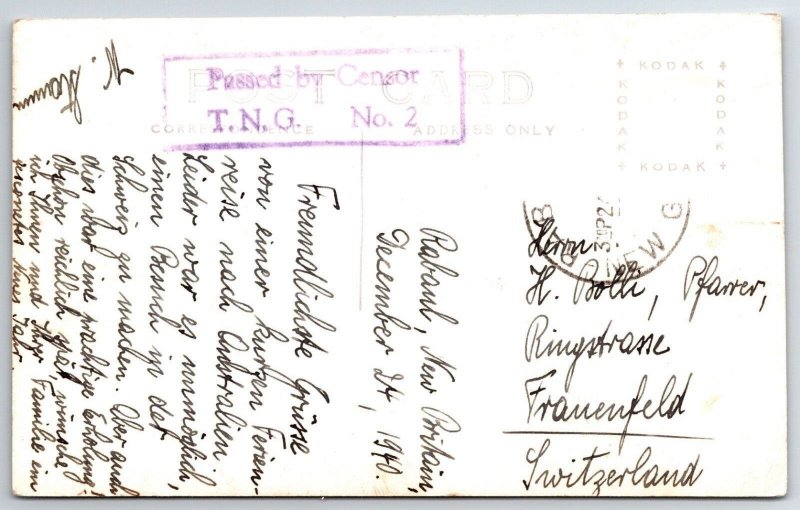 POST CARD
CORRESPONDENCE
ADDRESS ONLY
KODAK
KODAK
KODAK
KODAK
Passed by Censor
T.N.G. No. 2
NEW G
Rabaul, New Britain,
December 24, 1940.
Freundlichste Grüsse
von einer kurzen Ferien-
reise nach Australien
Leider war es unmöglich,
einen Besuch in der
Schweiz zu machen. Aber auch
dies war eine prächtige Erholung!
Obschon reichlich spät, wünsche
ich Ihnen und Ihrer Familie ein
Neues Jahr.
Herrn
H. Bolli, Pfarrer,
Ringstrasse
Frauenfeld
Switzerland